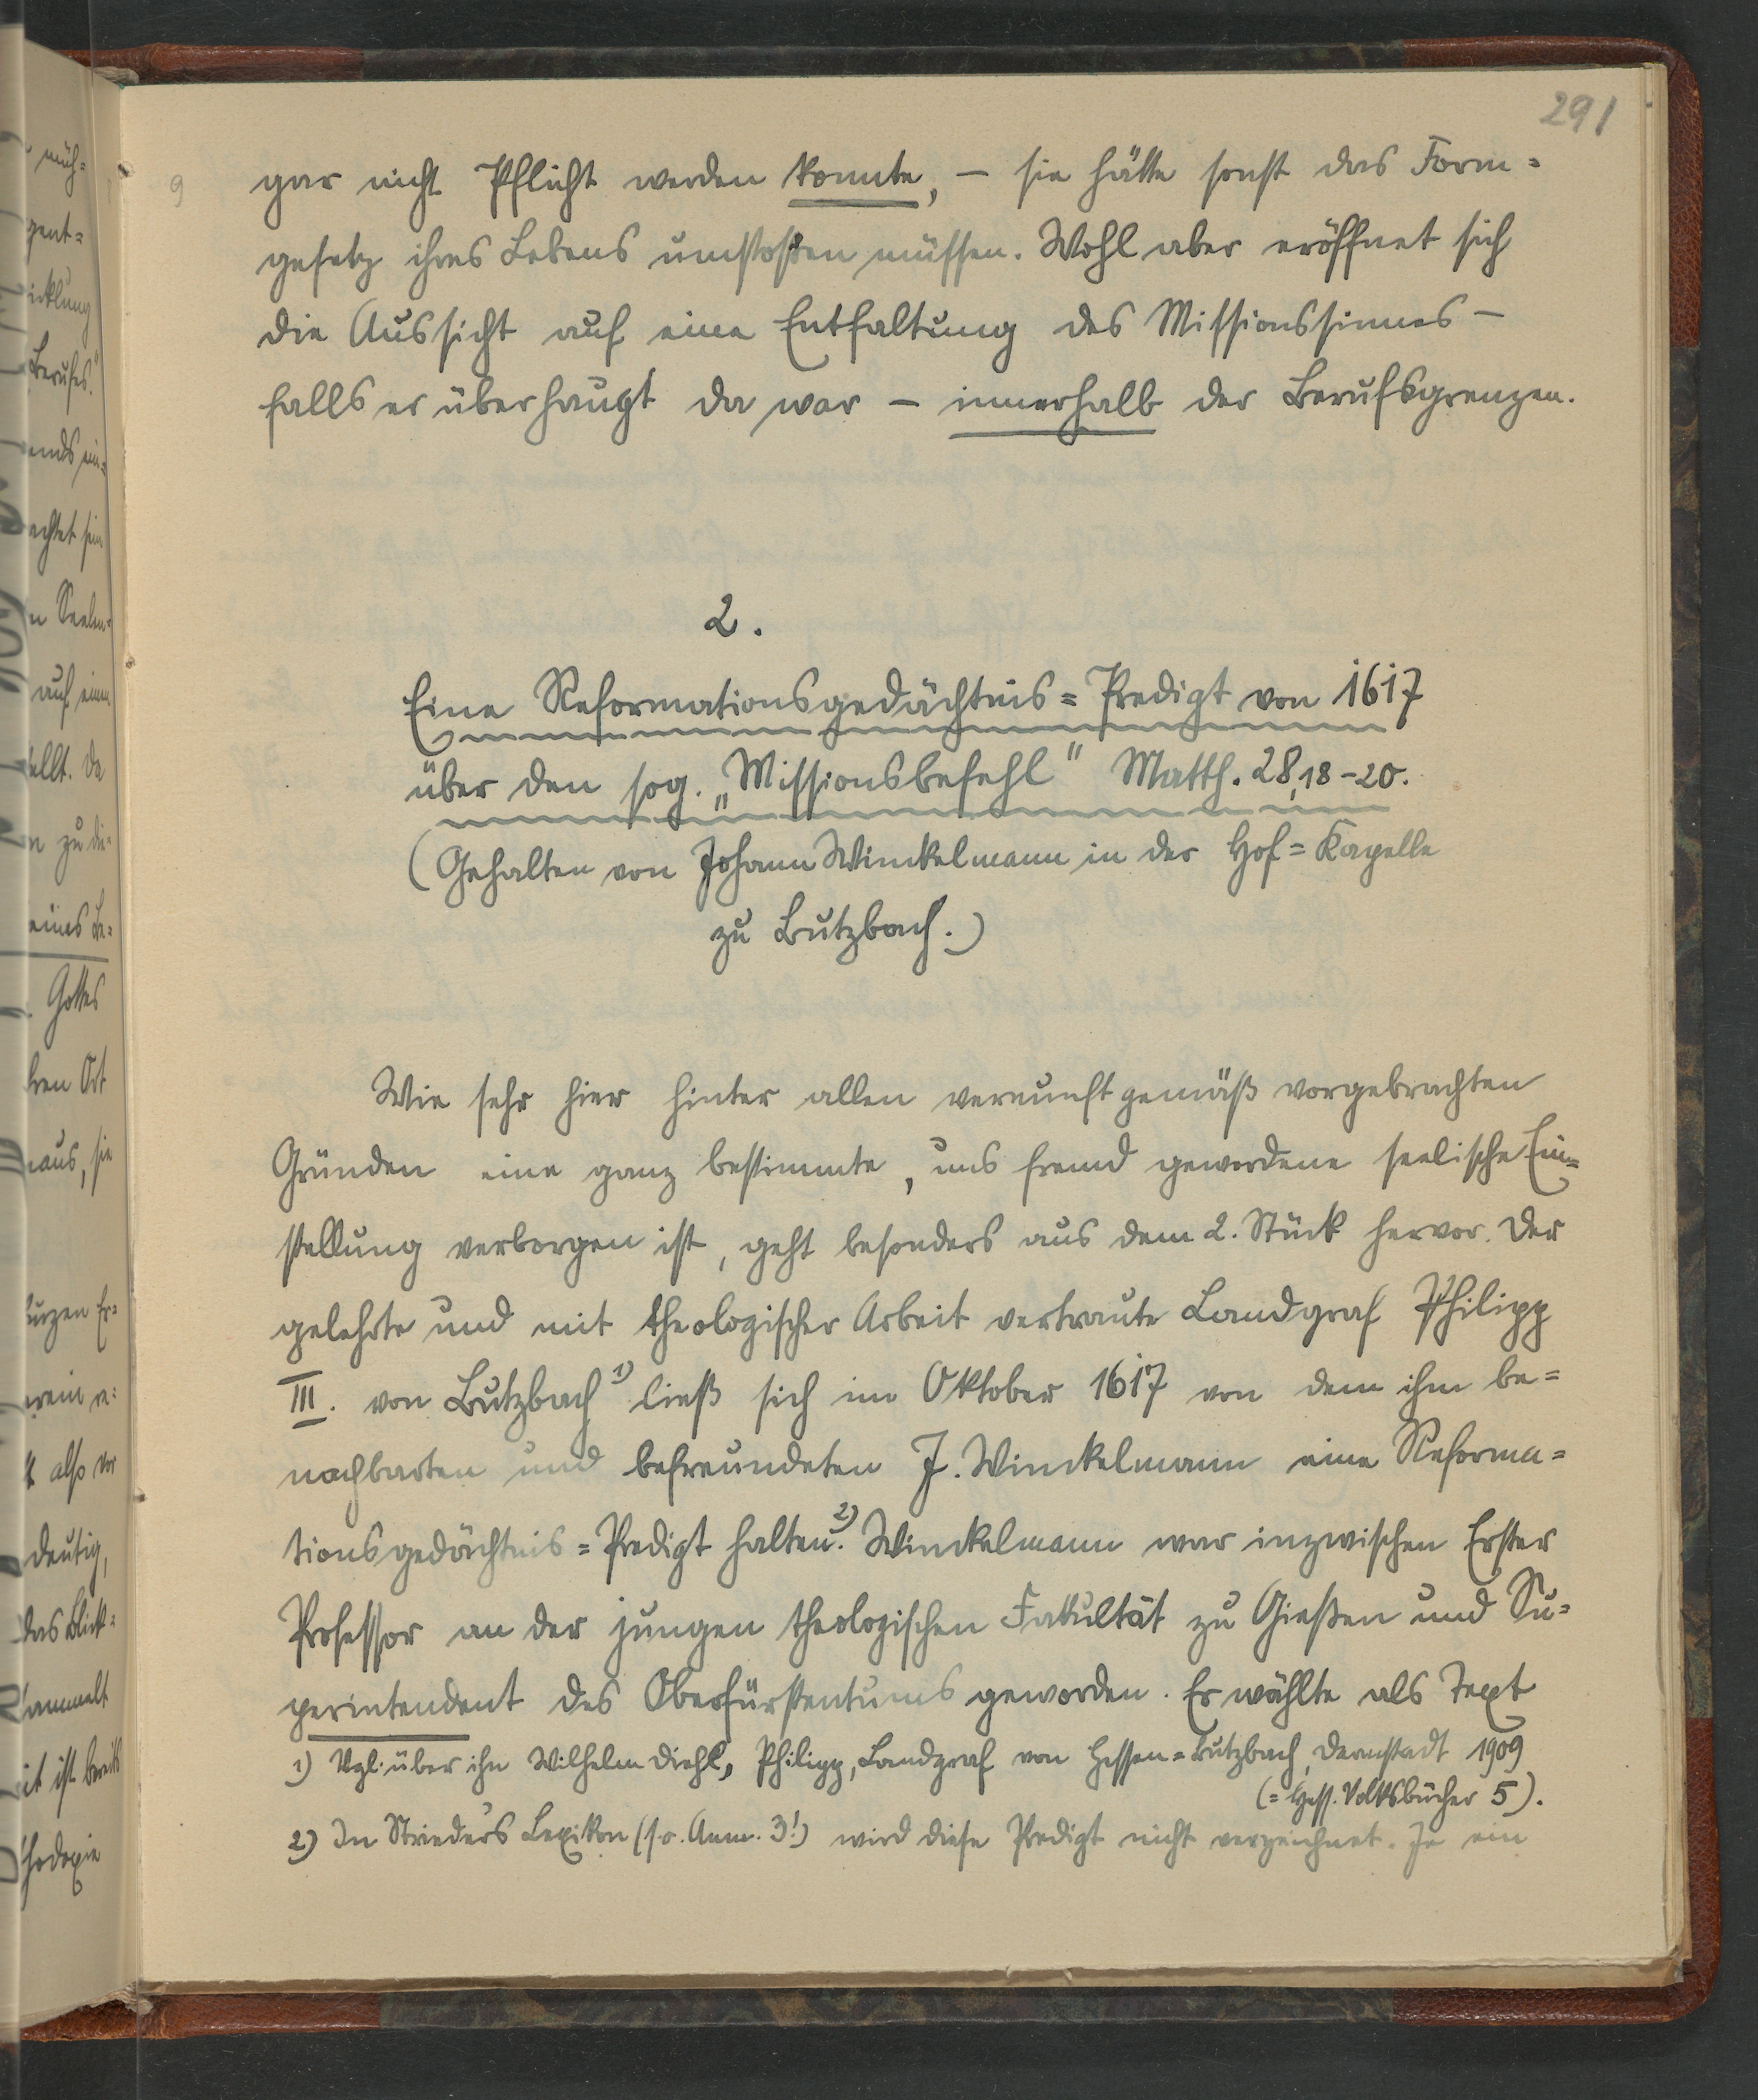 291
9
gar nicht Pflicht werden konnte, – sie hätte sonst das Form=
gesetz ihres Lebens umstoßen müssen. Wohl aber eröffnet sich
die Aussicht auf eine Entfaltung des Missionssinnes –
falls er überhaupt da war – innerhalb der Berufsgrenzen.
2.
Eine Reformationsgedächtnis=Predigt von 1617
über den sog. „Missionsbefehl" Matth. 28,18–20.
(Gehalten von Johann Winckelmann in der Hof=Kapelle
zu Butzbach.)
Wie sehr hier hinter allen vernunftgemäß vorgebrachten
Gründen eine ganz bestimmte, uns fremd gewordene seelische Ein=
stellung verborgen ist, geht besonders aus dem 2. Stück hervor. Der
gelehrte und mit theologischer Arbeit vertraute Landgraf Philipp
III. von Butzbach 1) ließ sich im Oktober 1617 von dem ihm be=
nachbarten und befreundeten J. Winckelmann eine Reforma=
tionsgedächtnis=Predigt halten. 2) Winckelmann war inzwischen Erster
Professor an der jungen theologischen Fakultät zu Gießen und Su=
perintendent des Oberfürstentums geworden. Er wählte als Text
1) Vgl. über ihn Wilhelm Diehl, Philipp, Landgraf von Hessen=Butzbach, Darmstadt 1909
(= Hess. Volksbücher 5).
2) In Strieder's Lexikon (s. o. Anm. 3!) wird diese Predigt nicht verzeichnet. Je ein